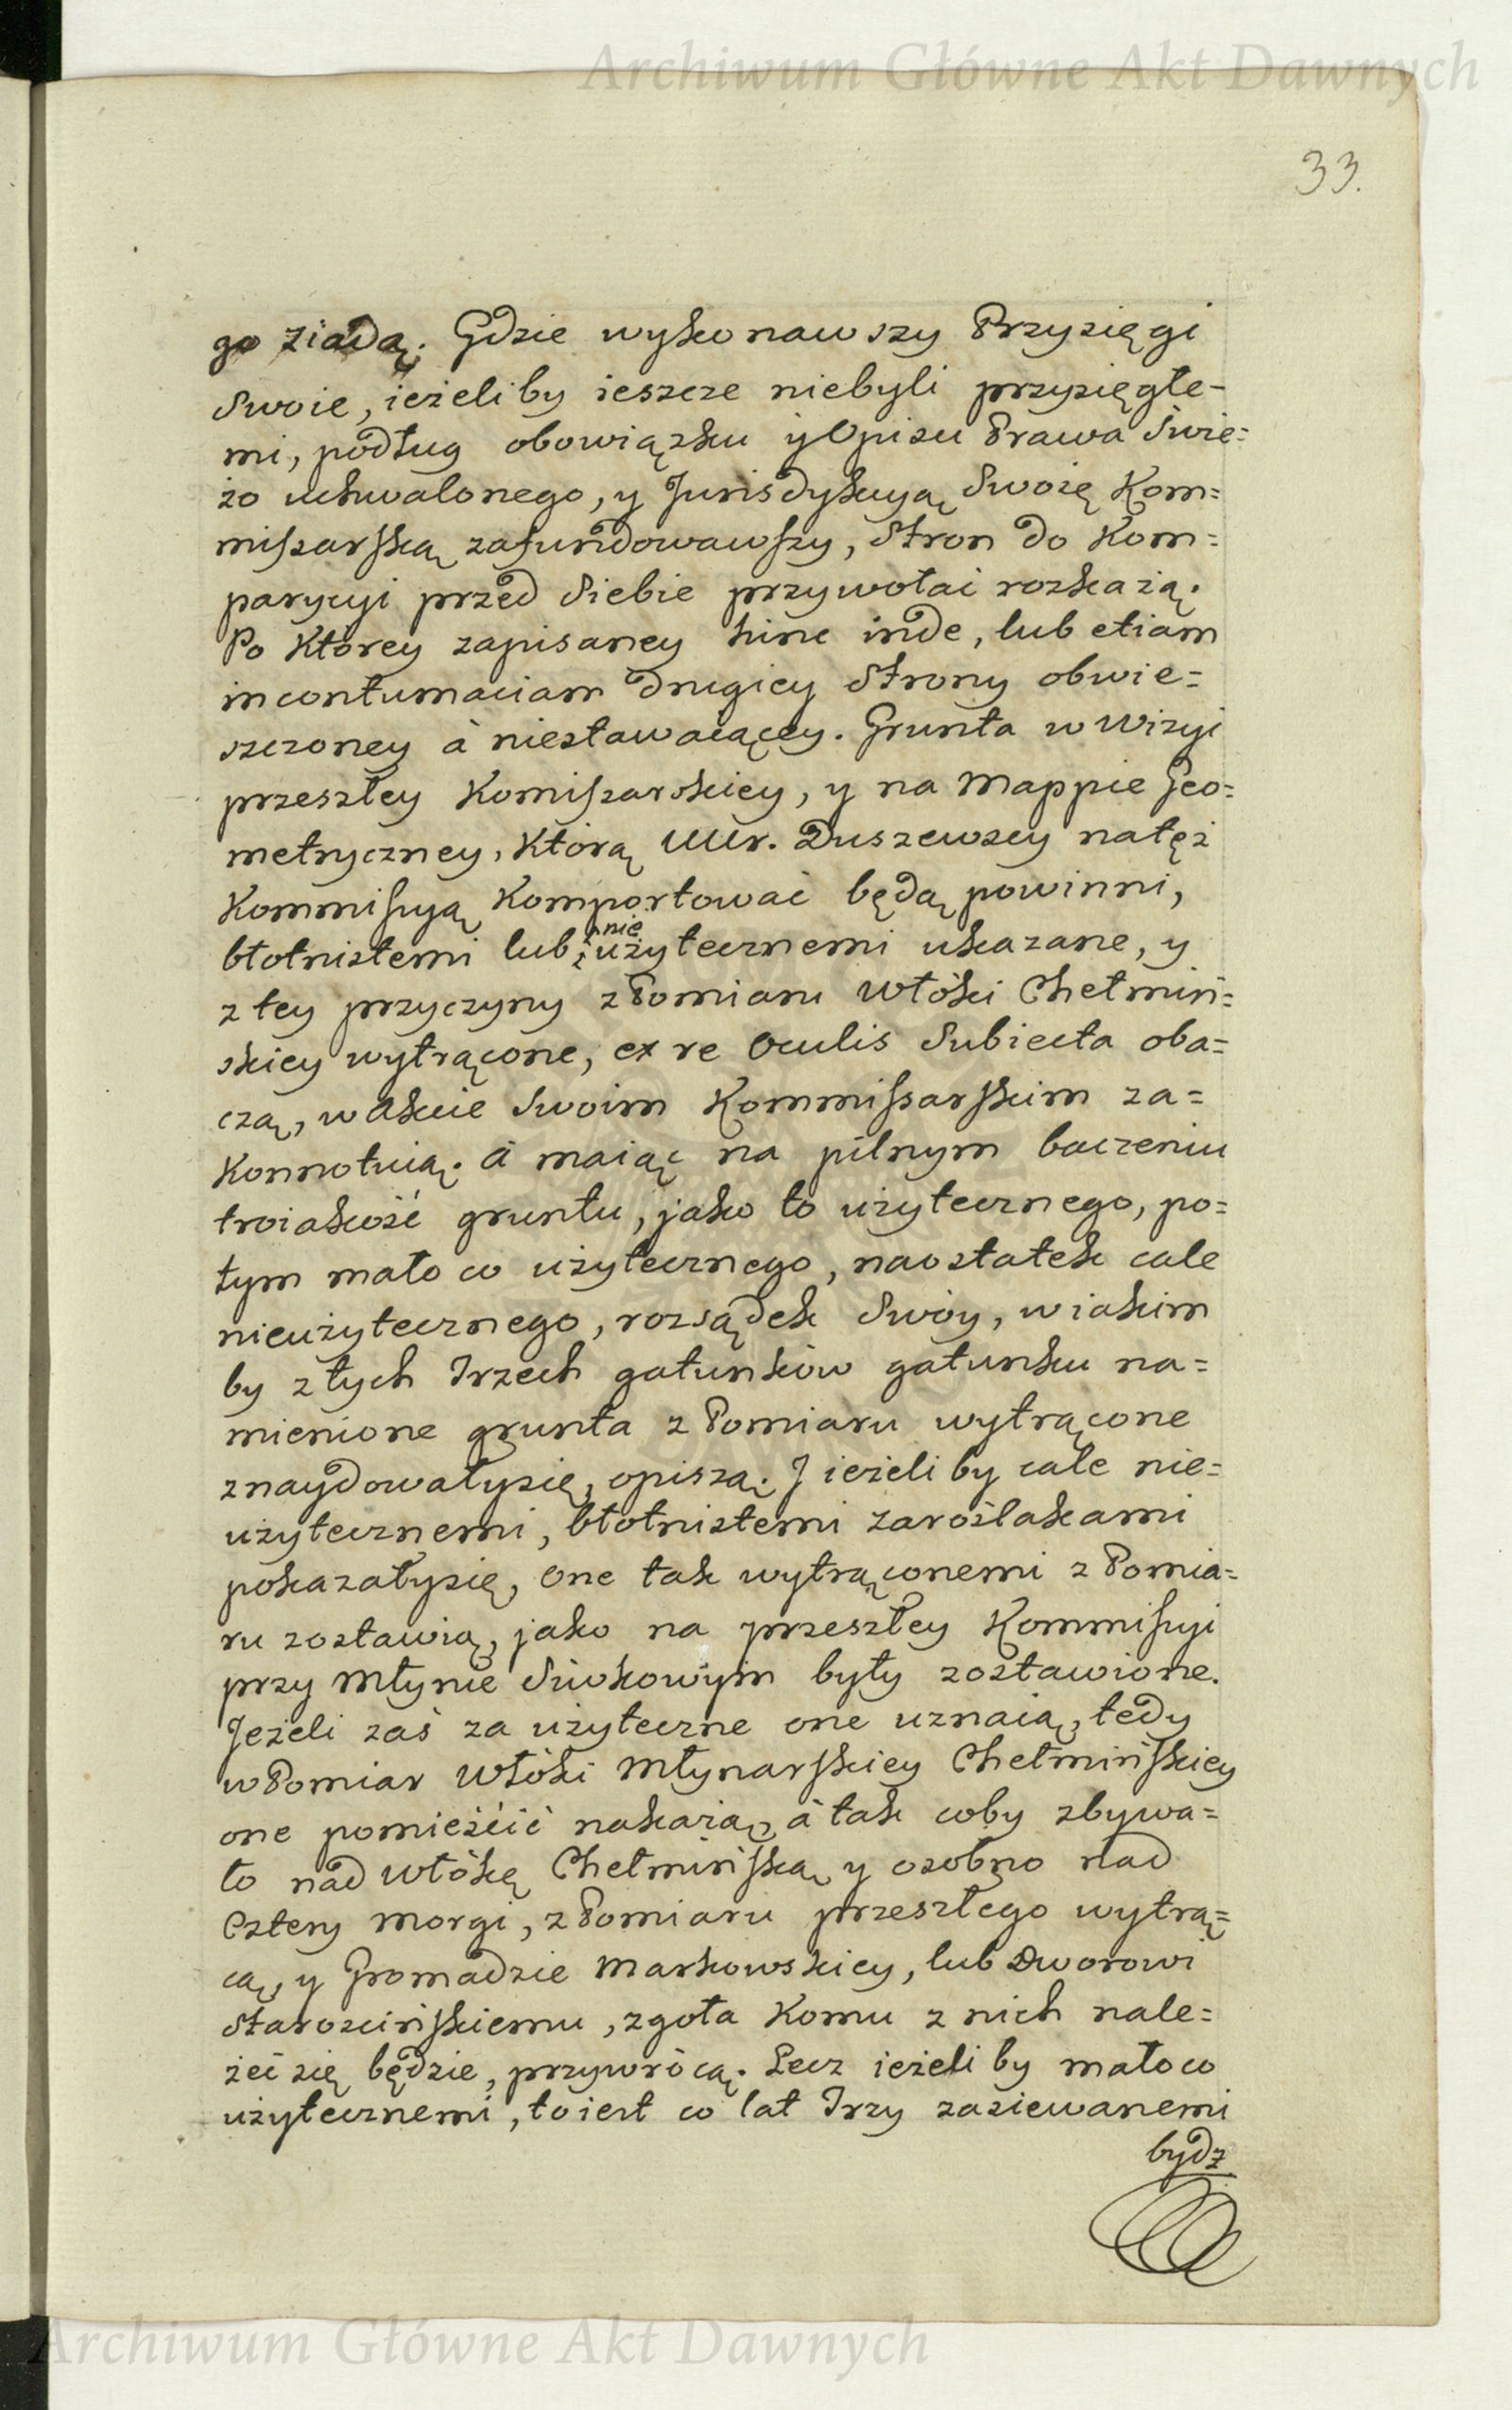 Archiwum Główne Akt Dawnych
33.
go ziadą. Gdzie wykonawszy Przysięgi
Swoie, ieżeliby ieszcze niebyli przysięgłe-
mi, podług obowiązku y Opisu Prawa Świe=
żo uchwalonego, y Jurisdykcyą Swoię Kom=
missarską zafundowawszy, Stron do Kom=
parycyi przed Siebie przywołać rozkażą.
Po Którey zapisaney hinc inde, lub etiam
in contumaciam drugiey Strony obwie=
szczoney à niestawaiącey. Grunta w Wizyi
przeszłey Komissarskiey, y na Mappie Geo=
metryczney, Którą UUr. Duszewscy na tęż
Kommissyą Komportować będą powinni,
błotnistemi lub nieużytecznemi ukazane, y
z tey przyczyny z Pomiaru Włóki Chełmiń=
skiey wytrącone, ex re Oculis Subiecta oba=
czą, w Akcie Swoim Kommissarskim za=
Konnotuią. à maiąc na pilnym baczeniu
troiakość gruntu, jako to użytecznego, po=
tym mało co użytecznego, naostatek cale
nieużytecznego, rozsądek Swóy, w iakim
by z tych Trzech gatunków gatunku na=
mienione grunta z Pomiaru wytrącone
znaydowałysię, opiszą. J ieżeliby cale nie=
użytecznemi, błotnistemi zaroślakami
pokazałysię, One tak wytrąconemi z Pomia=
ru zostawią, jako na przeszłey Kommissyi
przy Młynie Siwkowym były zostawione.
Jeżeli zaś za użyteczne one uznaią, tedy
w Pomiar Włóki Młynarskiey Chełmińskiey
one pomieścić nakażą, à tak coby zbywa=
ło nad Włókę Chełmińską y osobno nad
Cztery Morgi, z Pomiaru przeszłego wytrą=
cą, y Gromadzie Markowskiey, lub Dworowi
Starościńskiemu, zgoła Komu z nich nale=
żeć się będzie, przywrócą. Lecz ieżeliby małoco
użytecznemi, to iest co lat Trzy zasiewanemi
bydź
Archiwum Główne Akt Dawnych